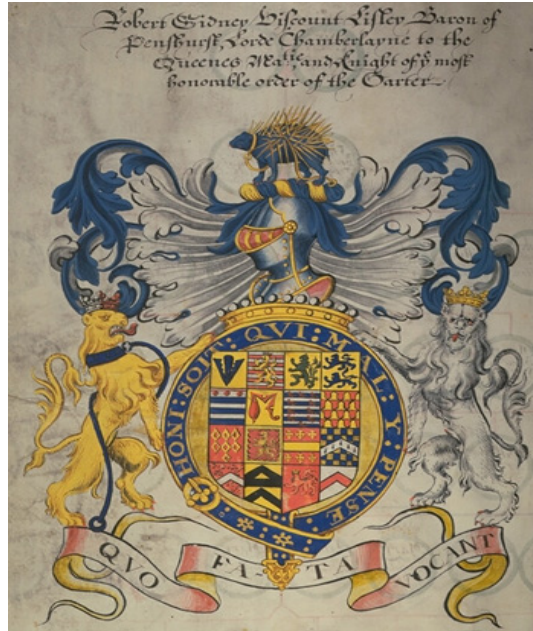 Robert Sidney Viscount Lisley Baron of
Penshurst, Lorde Chamberlayne to the
Queenes Matie and Knight of ye most
honorable order of the Garter
HONI : SOIT : QVI : MAL : Y : PENSE
QVO FA-TA VOCANT